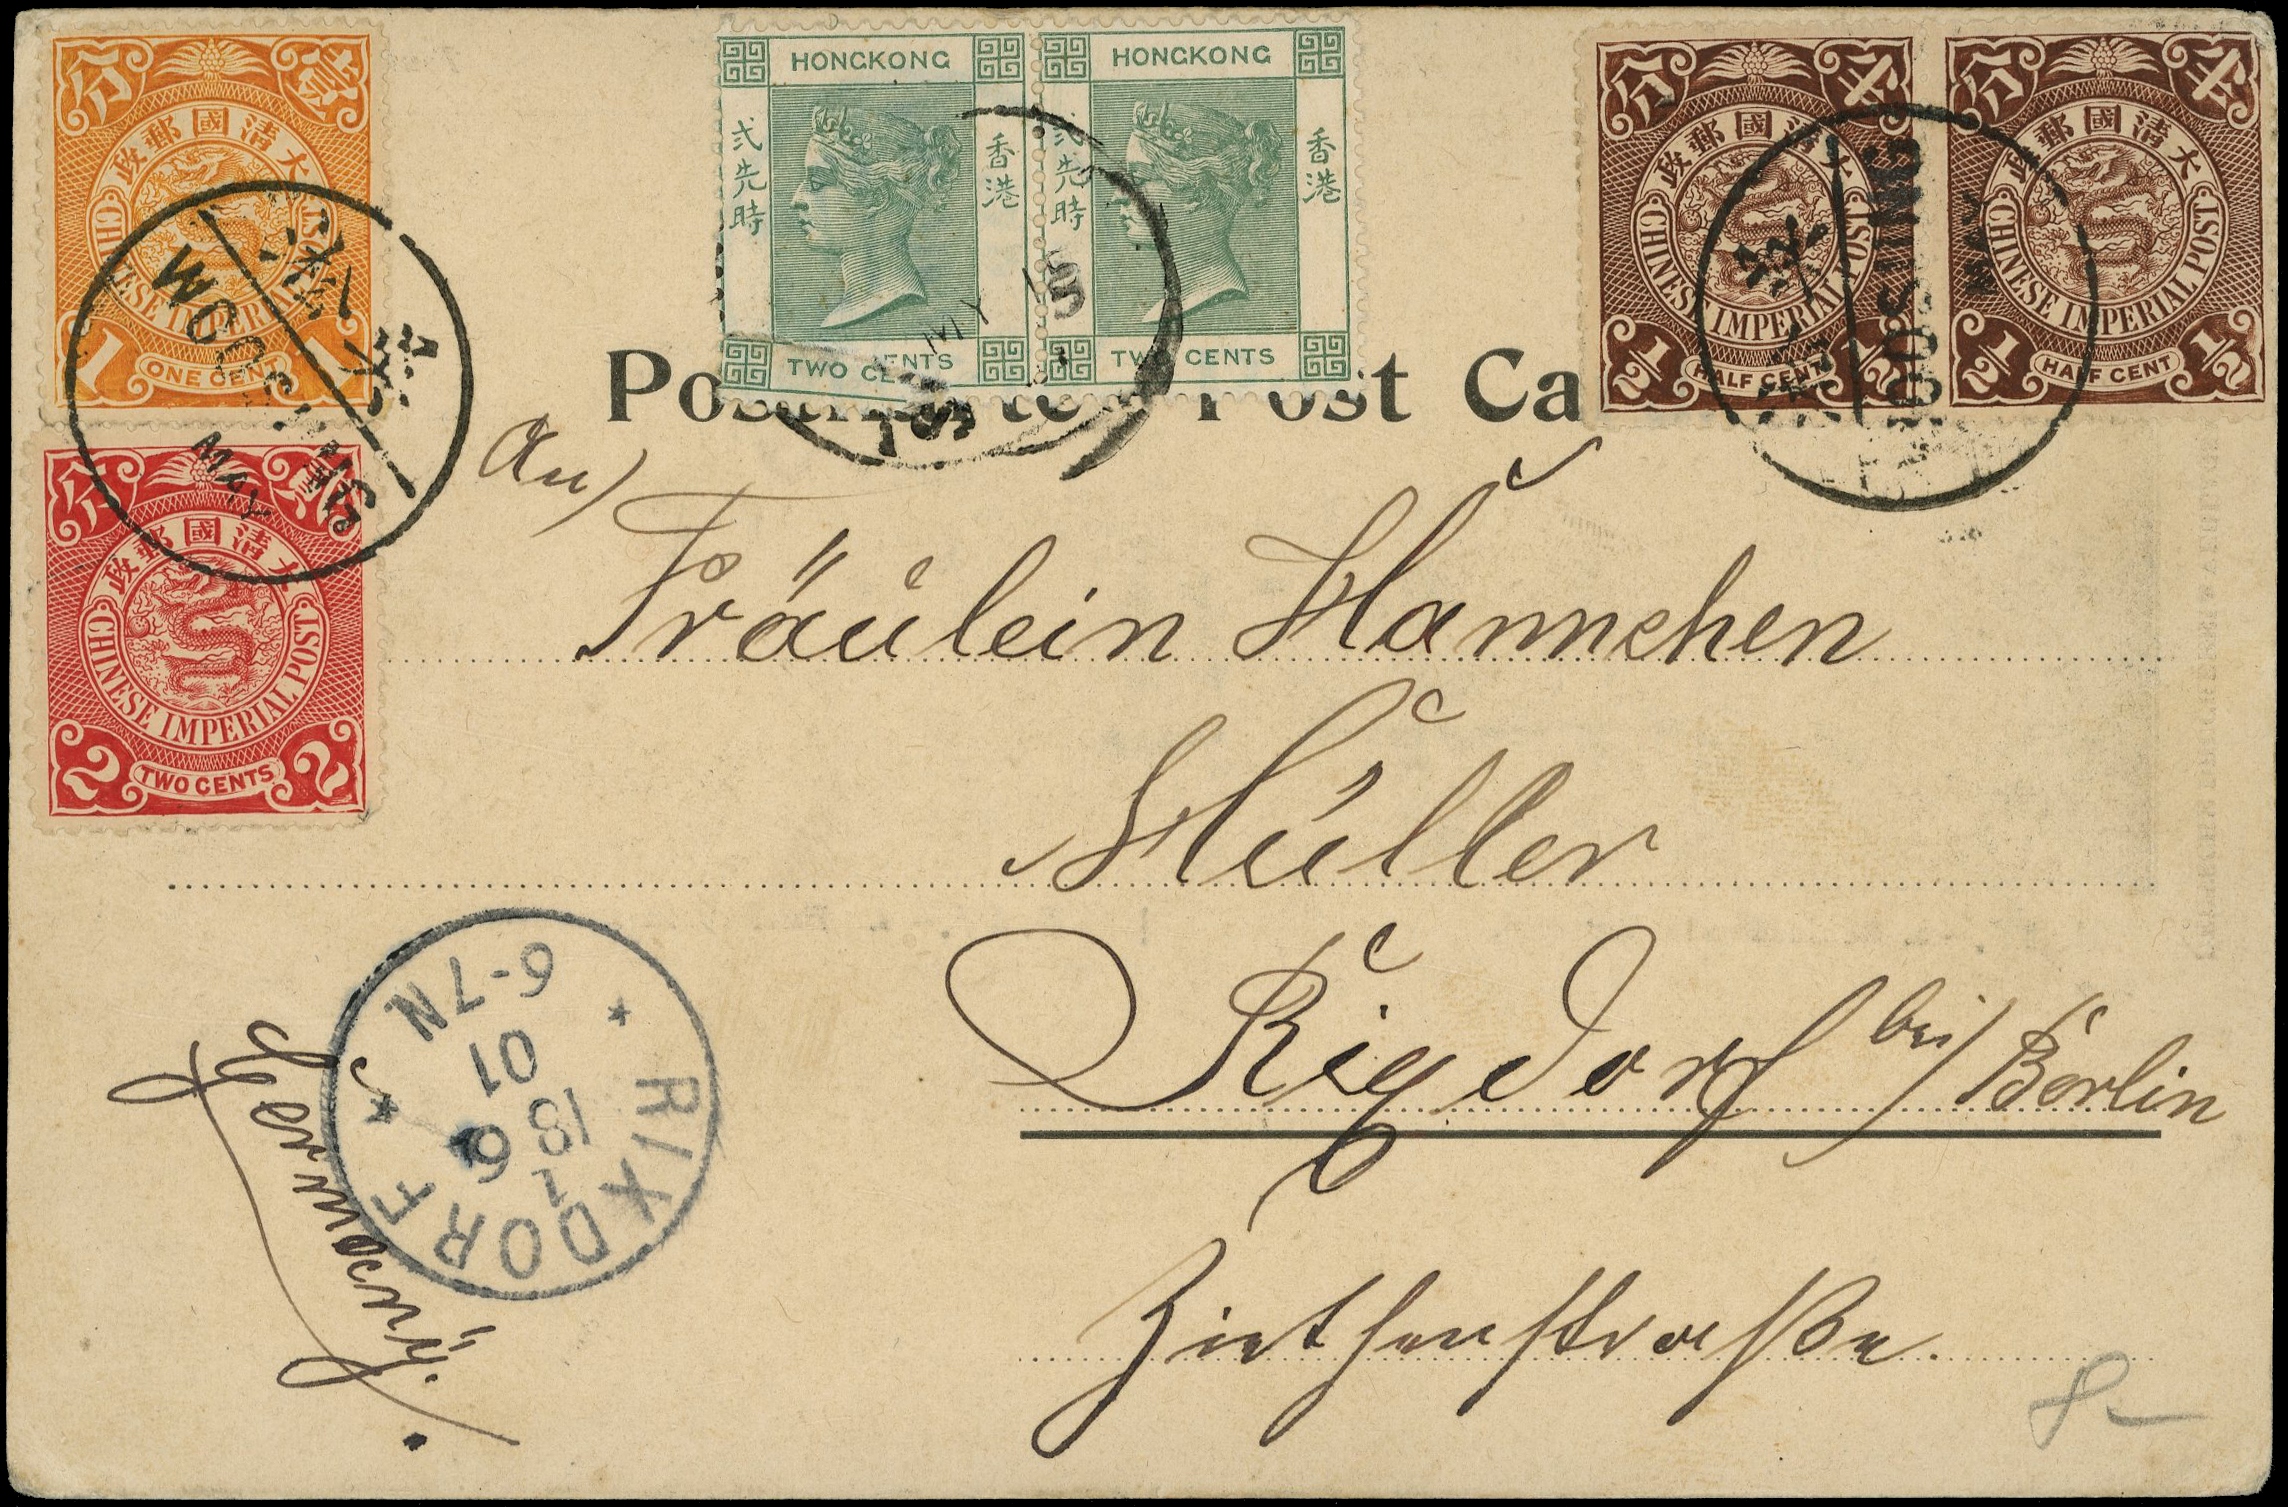 分 壹
大清國郵政
CHINESE IMPERIAL POST
1 ONE CENT 1
分 貳
大清國郵政
CHINESE IMPERIAL POST
2 TWO CENTS 2
HONGKONG
香港
弍先時
TWO CENTS
HONGKONG
香港
弍先時
TWO CENTS
分 半
大清國郵政
CHINESE IMPERIAL POST
1/2 HALF CENT 1/2
分 半
大清國郵政
CHINESE IMPERIAL POST
1/2 HALF CENT 1/2
WOOSUNG
MAY
WOOSUNG
MAY
MY
Post Ca
An
Fräulein Hannchen
Müller
Rixdorf bei Berlin
Ziethenstraße.
Germany.
* RIXDORF *
1
18 6
01
6-7N